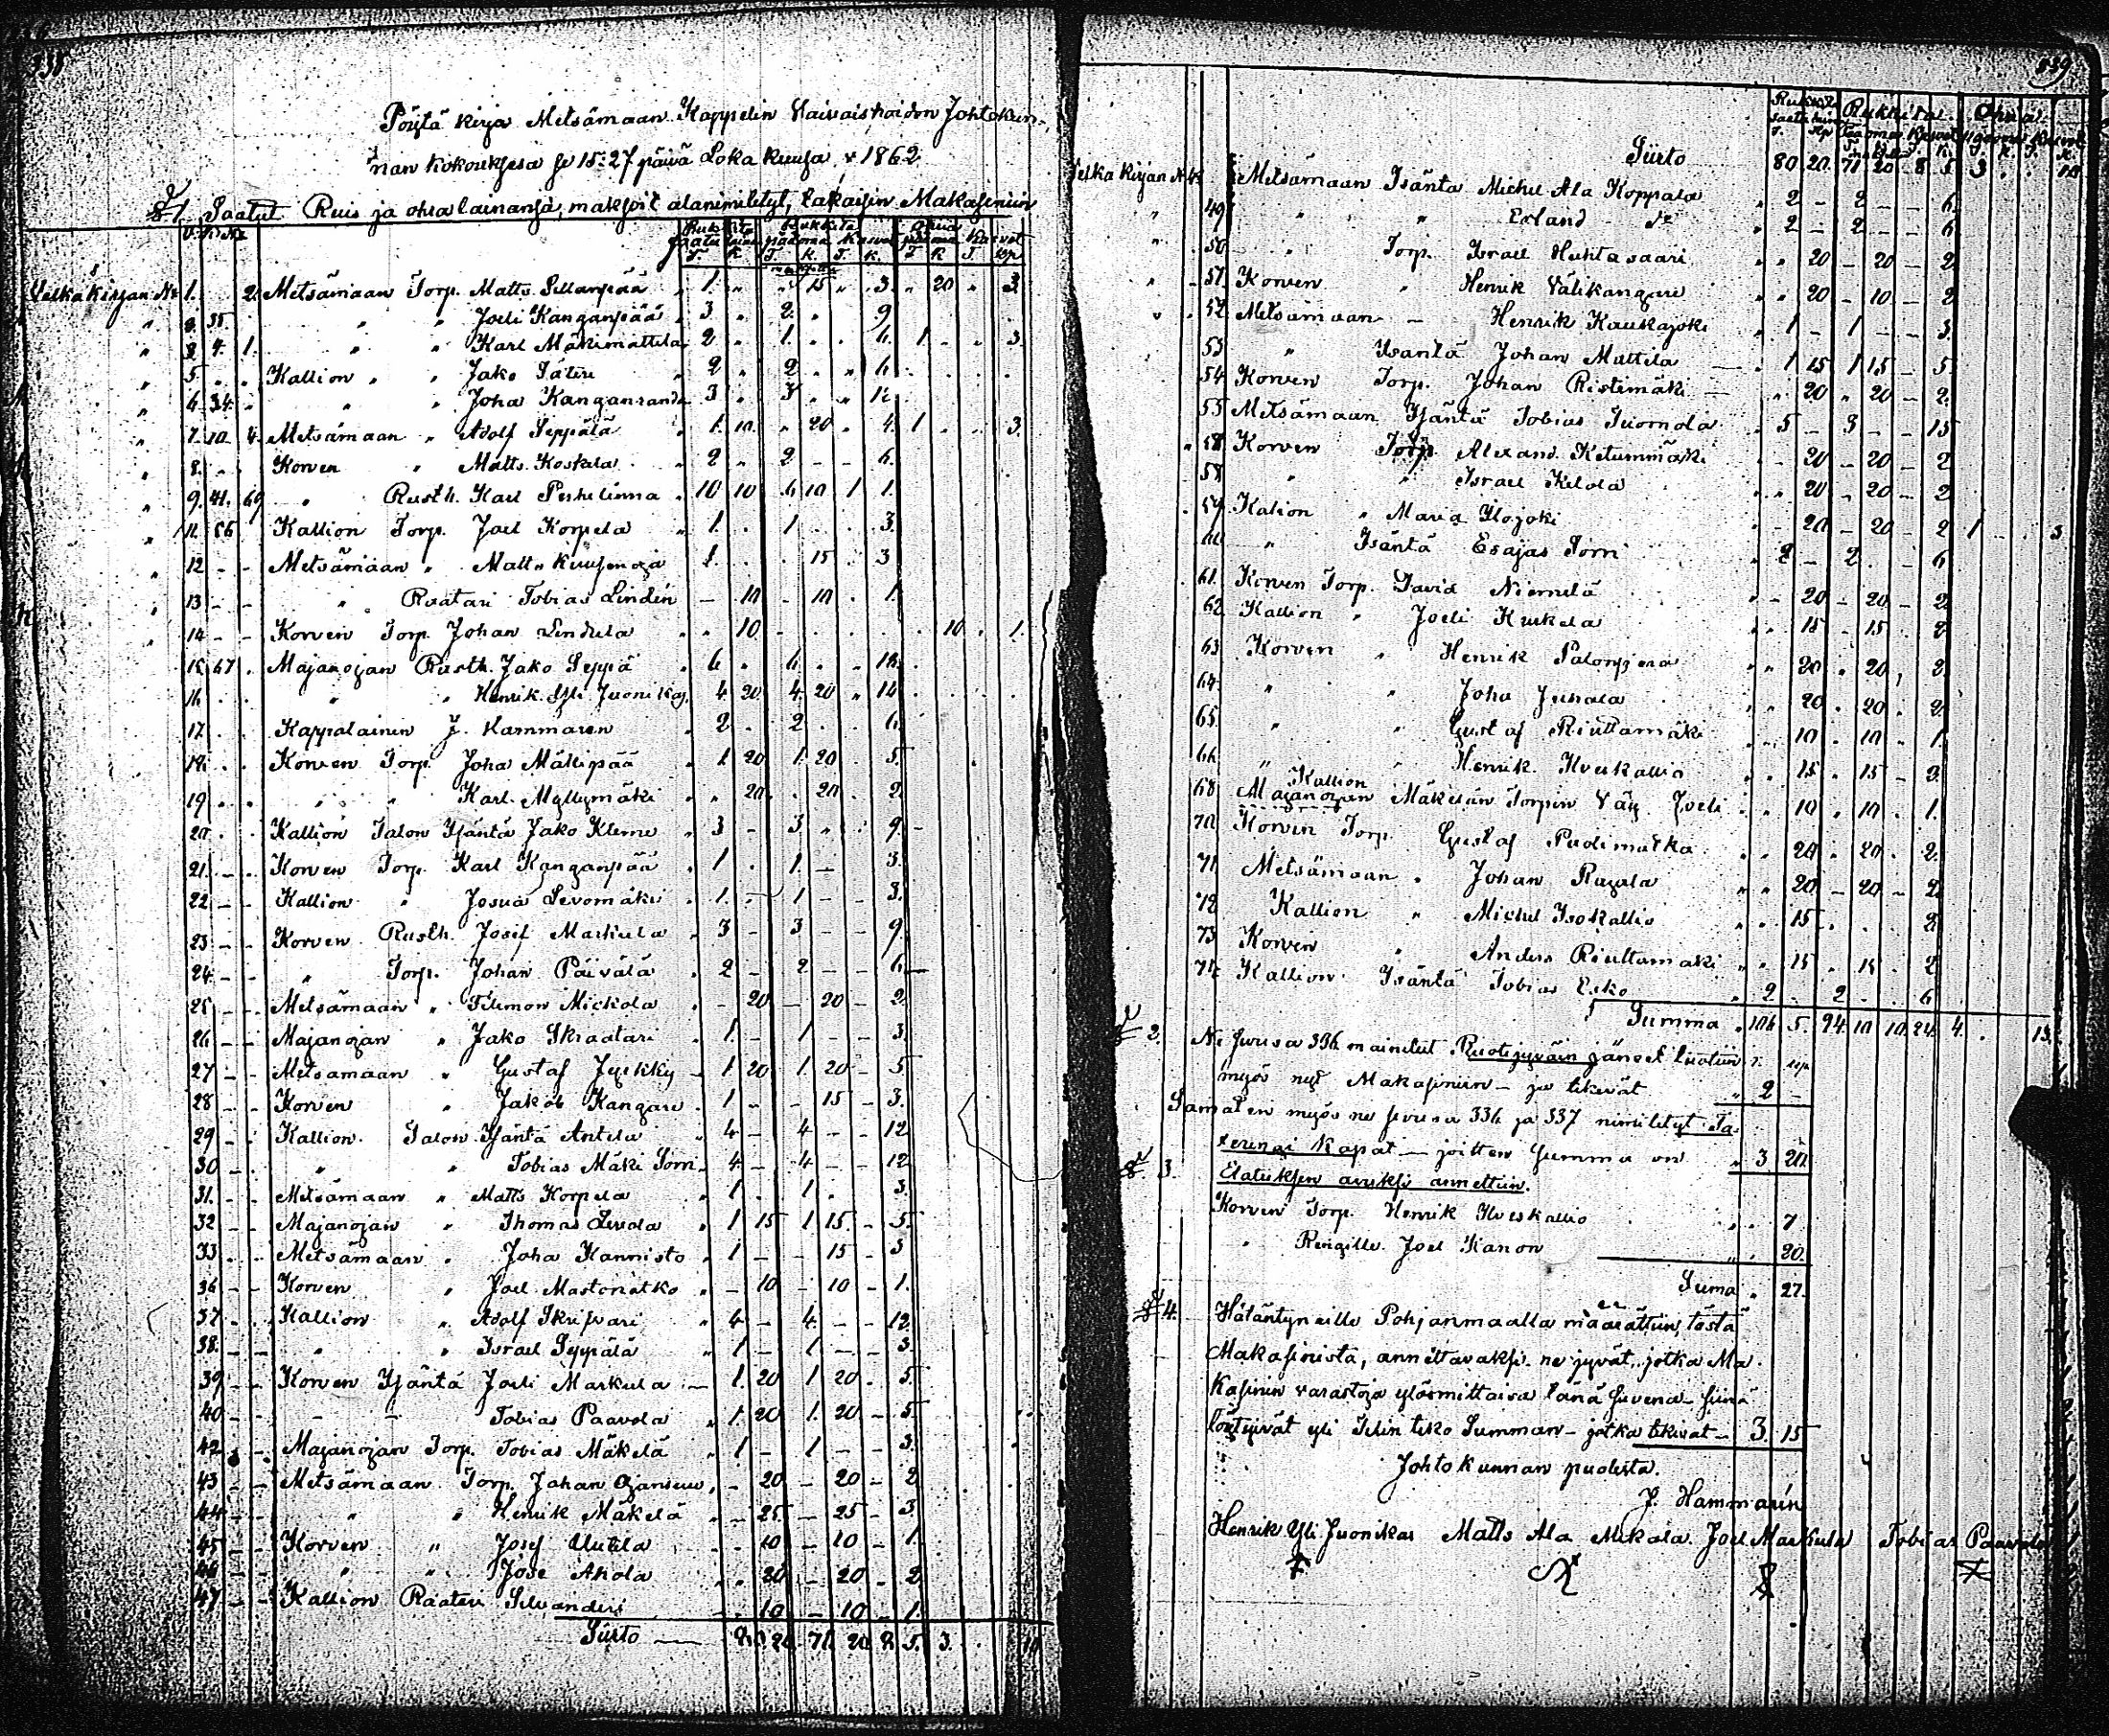 338
Pöytä kirja Metsämaan Kappelin Vaivaishoidon Johtokun-
nan kokouksesa se 15:27 päivä Loka kuusa v 1862
§ 1. Saatut Ruis ja ohra lainansa, maksoit alanimitetyt, takaisin Makasiniin
Velka kirjan No 1. 2 Metsämaan Torp. Matts Sillanpää 1. 15 3 20 3
35. " " Joeli Kanganpää 3 2 9
4. 1. " " Karl Mäkimattila 2 1 6 1 3
5 Kallion " Jako Säteri 2 2 6
6 34. " " Joha Kanganranda 3 3 12
7 10 4 Metsämaan " Adolf Seppälä 1 10 20 4 1 3
8. Korven " Matts Koskela 2 2 6
9. 41. 69 " Rusth. Karl Perhelinna 10 10 6 10 1 1
11. 56 Kallion Torp. Joel Korpela 1 1 3
12 Metsämaan " Matts Kuusenoja 1. 15 3
13 " Räätari Tobias Lindén 10 10 1
14 Korven Torp. Johan Lindula 10 10 1
15 67 Majanojan Rusth. Jako Seppä 6 6 18
16 " " Henrik Yli Juonikas 4 20 4 20 14
17. Kappalainen J. Hammaren 2 2 6
18. Korven Torp. Joha Mällipää 1 20 1 20 5
19 " " Karl Myllymäki 20 20 2
20 Kallion Talon Isäntä Jako Kleme 3 3 9
21 Korven Torp. Karl Kanganpää 1 1 3
22 Kallion " Josua Levomäki 1 1 3
23 Korven Rusth. Josef Markula 3 3 9
24 " Torp. Johan Päivälä 2 2 6
25 Metsämaan " Filemon Mickola 20 20 2
26 Majanojan " Jako Skraatari 1 1 3
27 Metsamaan " Gustaf Jyrkky 1 20 1 20 5
28 Korven " Jakob Kangare 1 15 3
29 Kallion Talon Isäntä Antela 4 4 12
30 " " Tobias Mäki Torri 4 4 12
31. Metsämaan " Matts Korpela 1 1 3
32 Majanojan " Thomas Levola 1 15 1 15 5
33 Metsämaan " Joha Kannisto 1 15 3
36 Korven " Joel Mastonätko 10 10 1
37 Kallion " Adolf Skrifvari 4 4 12
38. " " Israel Seppälä 1 1 3
39 Korven Isäntä Joeli Markula 1. 20 1 20 5
40 Tobias Paavola 1 20 1 20 5
42 Majanojan Torp. Tobias Mäkelä 1 1 3
43 Metsämaan Torp. Johan Ojansuu 20 20 2
44 " " Henrik Mäkelä 25 25 3
45 Korven " Josef Uutela 10 10 1
46 " " Jose Ahola 20 20 2
47 Kallion Räatari Silvanderi 10 10 1
Siirto 80 20 71 20 8 5 3 10
339
Siirto 80 20 71 20 8 5 3 10
Velka kirjan No 48 Metsämaan Isäntä Michel Ala Koppala 2 2 6
49 " " Erland 2 2 6
50 " Torp. Israel Huhtasaari 20 20 2
51 Korven " Henrik Välikangare 20 10 2
52 Metsämaan Henrik Kaukajoki 1 1 3
53 " Isäntä Johan Mattila 1 15 1 15 5
54 Korven Torp. Johan Ristimäki 20 20 2
55 Metsämaan Isäntä Tobias Juornola 5 5 15
58 Korven Torp. Alexand. Ketunmäki 20 20 2
58 " " Israel Kelola 20 20 2
59 Kalion " Maria Ilojoki 20 20 2 1 3
60 " Isäntä Esajas Torri 2 2 6
61. Korven Torp. David Niemelä 20 20 2
62 Kallion " Joeli Kukela 15 15 2
63 Korven " Henrik Palonperä 20 20 2
64 " " Joha Juhala 20 20 2
65 " " Gustaf Riuttamäki 10 10 1
66 " " Henrik Ilveskallio 15 15 2
Kallion
68 Majanojan Mäkelän Torpin Väg Joeli 10 10 1
70 Korven Torp. Gustaf Puolimatka 20 20 2
71 Metsämaan " Johan Rajala 20 20 2
72 Kallion " Michel Isokallio 15 2
73 Korven " Anders Riuttamäki 15 15 2
74 Kallion Isäntä Tobias Esko 2 2 6
Summa 106 5 94 10 10 24 4 13
§ 2. Ne sivusa 336 mainitut Ruotijyväin jäneet luotiin
myös nyt Makasiniin – ja tekivät 2 –
Samaten myös ne sivusa 336 ja 337 nimitetyt Ta-
rengi kapat – joitten summa on 3 20
§ 3. Elatuksen avuksi annettiin.
Korven Torp. Henrik Ilveskallio 7
" Rengille Joel Kanon 20
Suma 27
§ 4. Hätäntyneille Pohjanmaalla määrättiin, tästä
Makasinista, annettavaksi ne jyvät, jotka Ma-
kasinin varastoja ylösmittaisa tänä suvena – siinä
löytyivät yli Tilin teko Summan – jotka tekivät – 3. 15
Johtokunnan puolesta.
J. Hammarén
Henrik Yli Juonikas Matts Ala Mikala Joel Markula Tobias Paavola